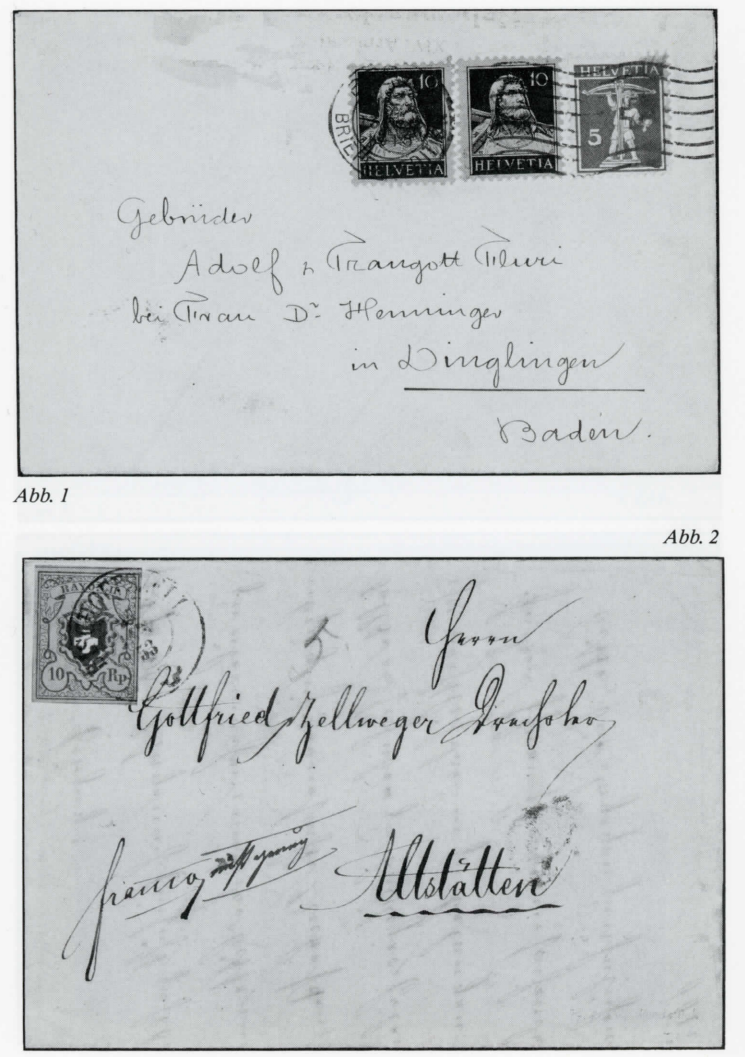 10
HELVETIA
10
HELVETIA
HELVETIA
5
BRIEF
Gebrüder
Adolf & Traugott Fluri
bei Frau Dr. Henninger
in Dinglingen
Baden.
Abb. 1
Abb. 2
RAYON II
10 Rp
53
Herrn
Gottfried Zellweger Drechsler
franco
Altstätten